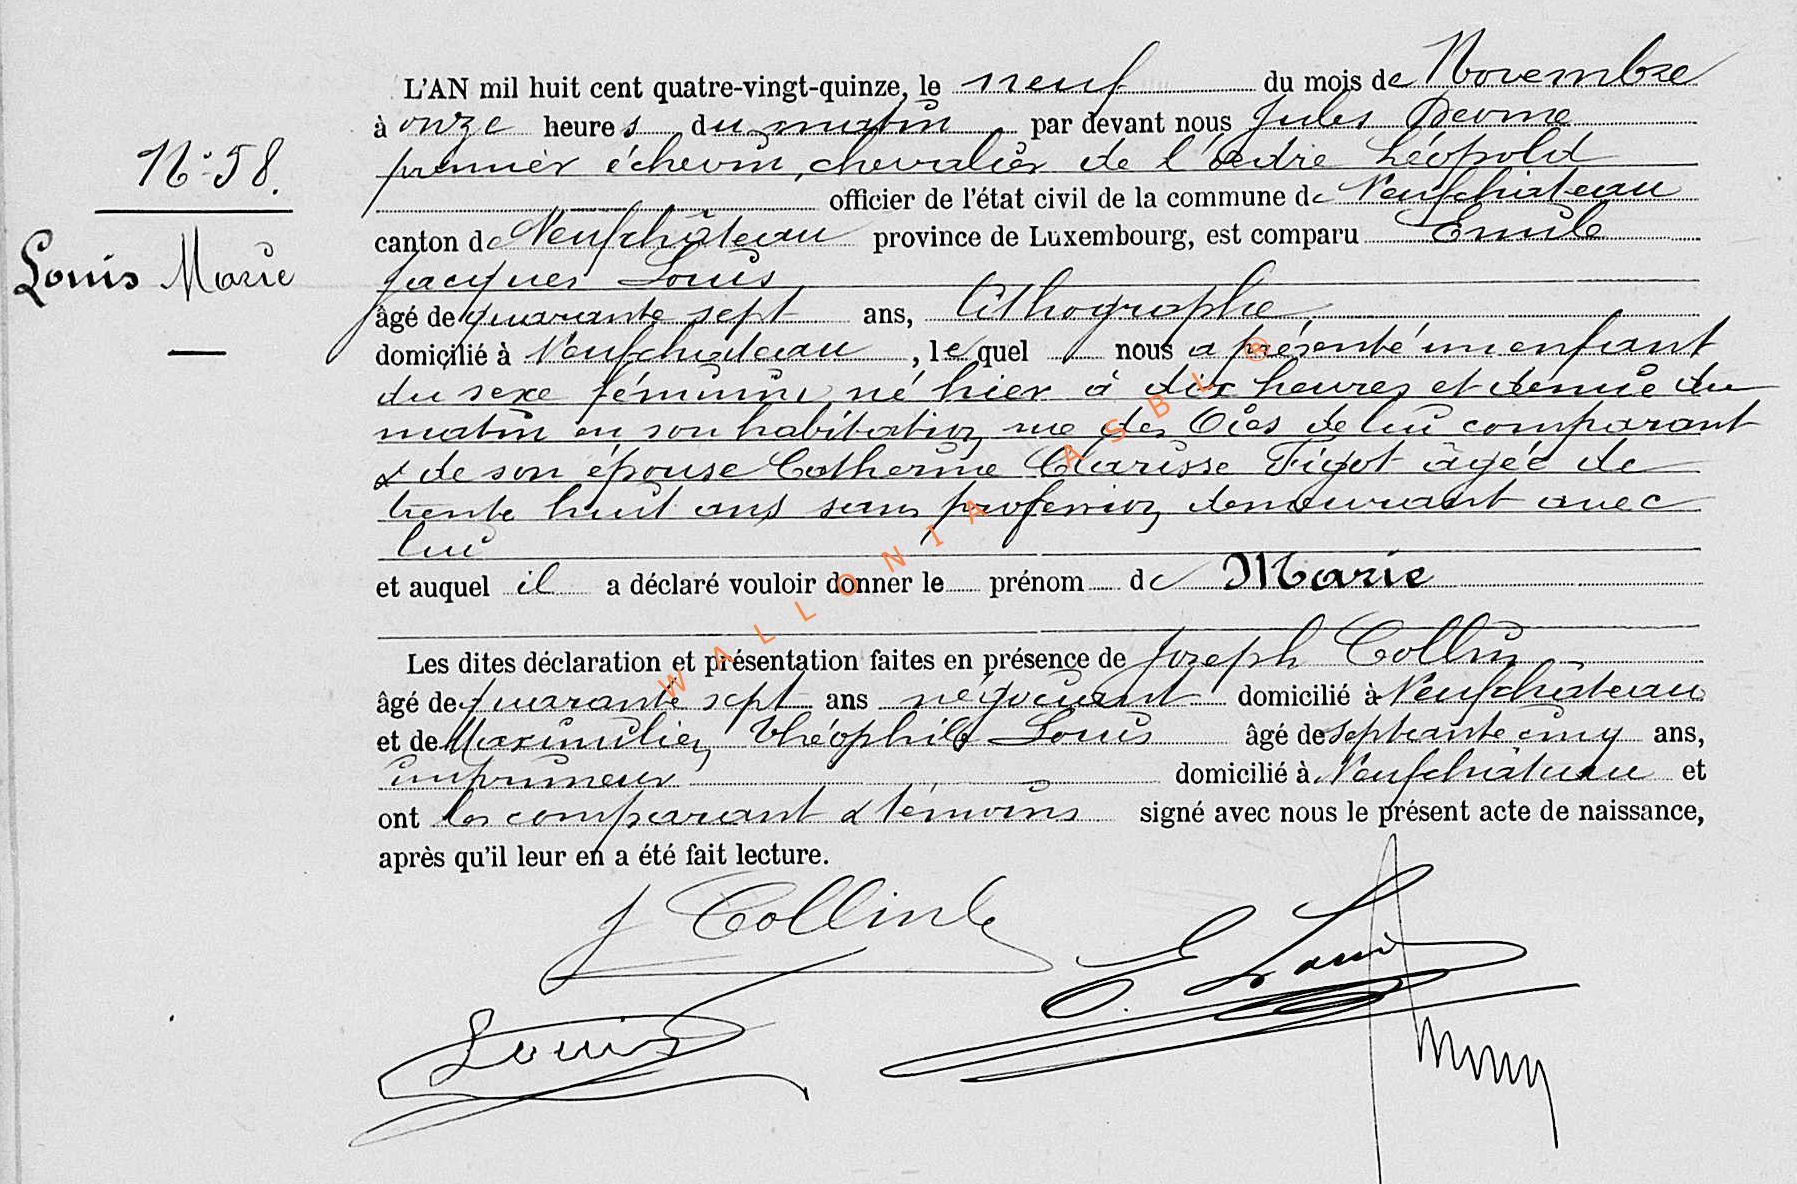 L'AN mil huit cent quatre-vingt-quinze, le neuf du mois de Novembre
à onze heures du matin par devant nous Jules
premier échevin, chevalier de l'ordre Léopold
officier de l'état civil de la commune de Neufchâteau
canton de Neufchâteau province de Luxembourg, est comparu Emile
Jacques Louis
âgé de quarante sept ans, lithographe
domicilié à Neufchâteau, lequel nous a présenté un enfant
du sexe féminin, né hier à dix heures et demie du
matin en son habitation rue des Oies de lui comparant
& de son épouse Catherine Clarisse Figot âgée de
trente huit ans sans profession, demeurant avec
lui
et auquel il a déclaré vouloir donner le prénom de Marie
Les dites déclaration et présentation faites en présence de Joseph Collin
âgé de quarante sept ans négociant domicilié à Neufchâteau
et de Maximilien Théophile Louis âgé de septante cinq ans,
imprimeur domicilié à Neufchâteau et
ont les comparant & témoins signé avec nous le présent acte de naissance,
après qu'il leur en a été fait lecture.
N° 58.
Louis Marie
J Collin
E. Louis
Louis
WALLONIA ASBL ®